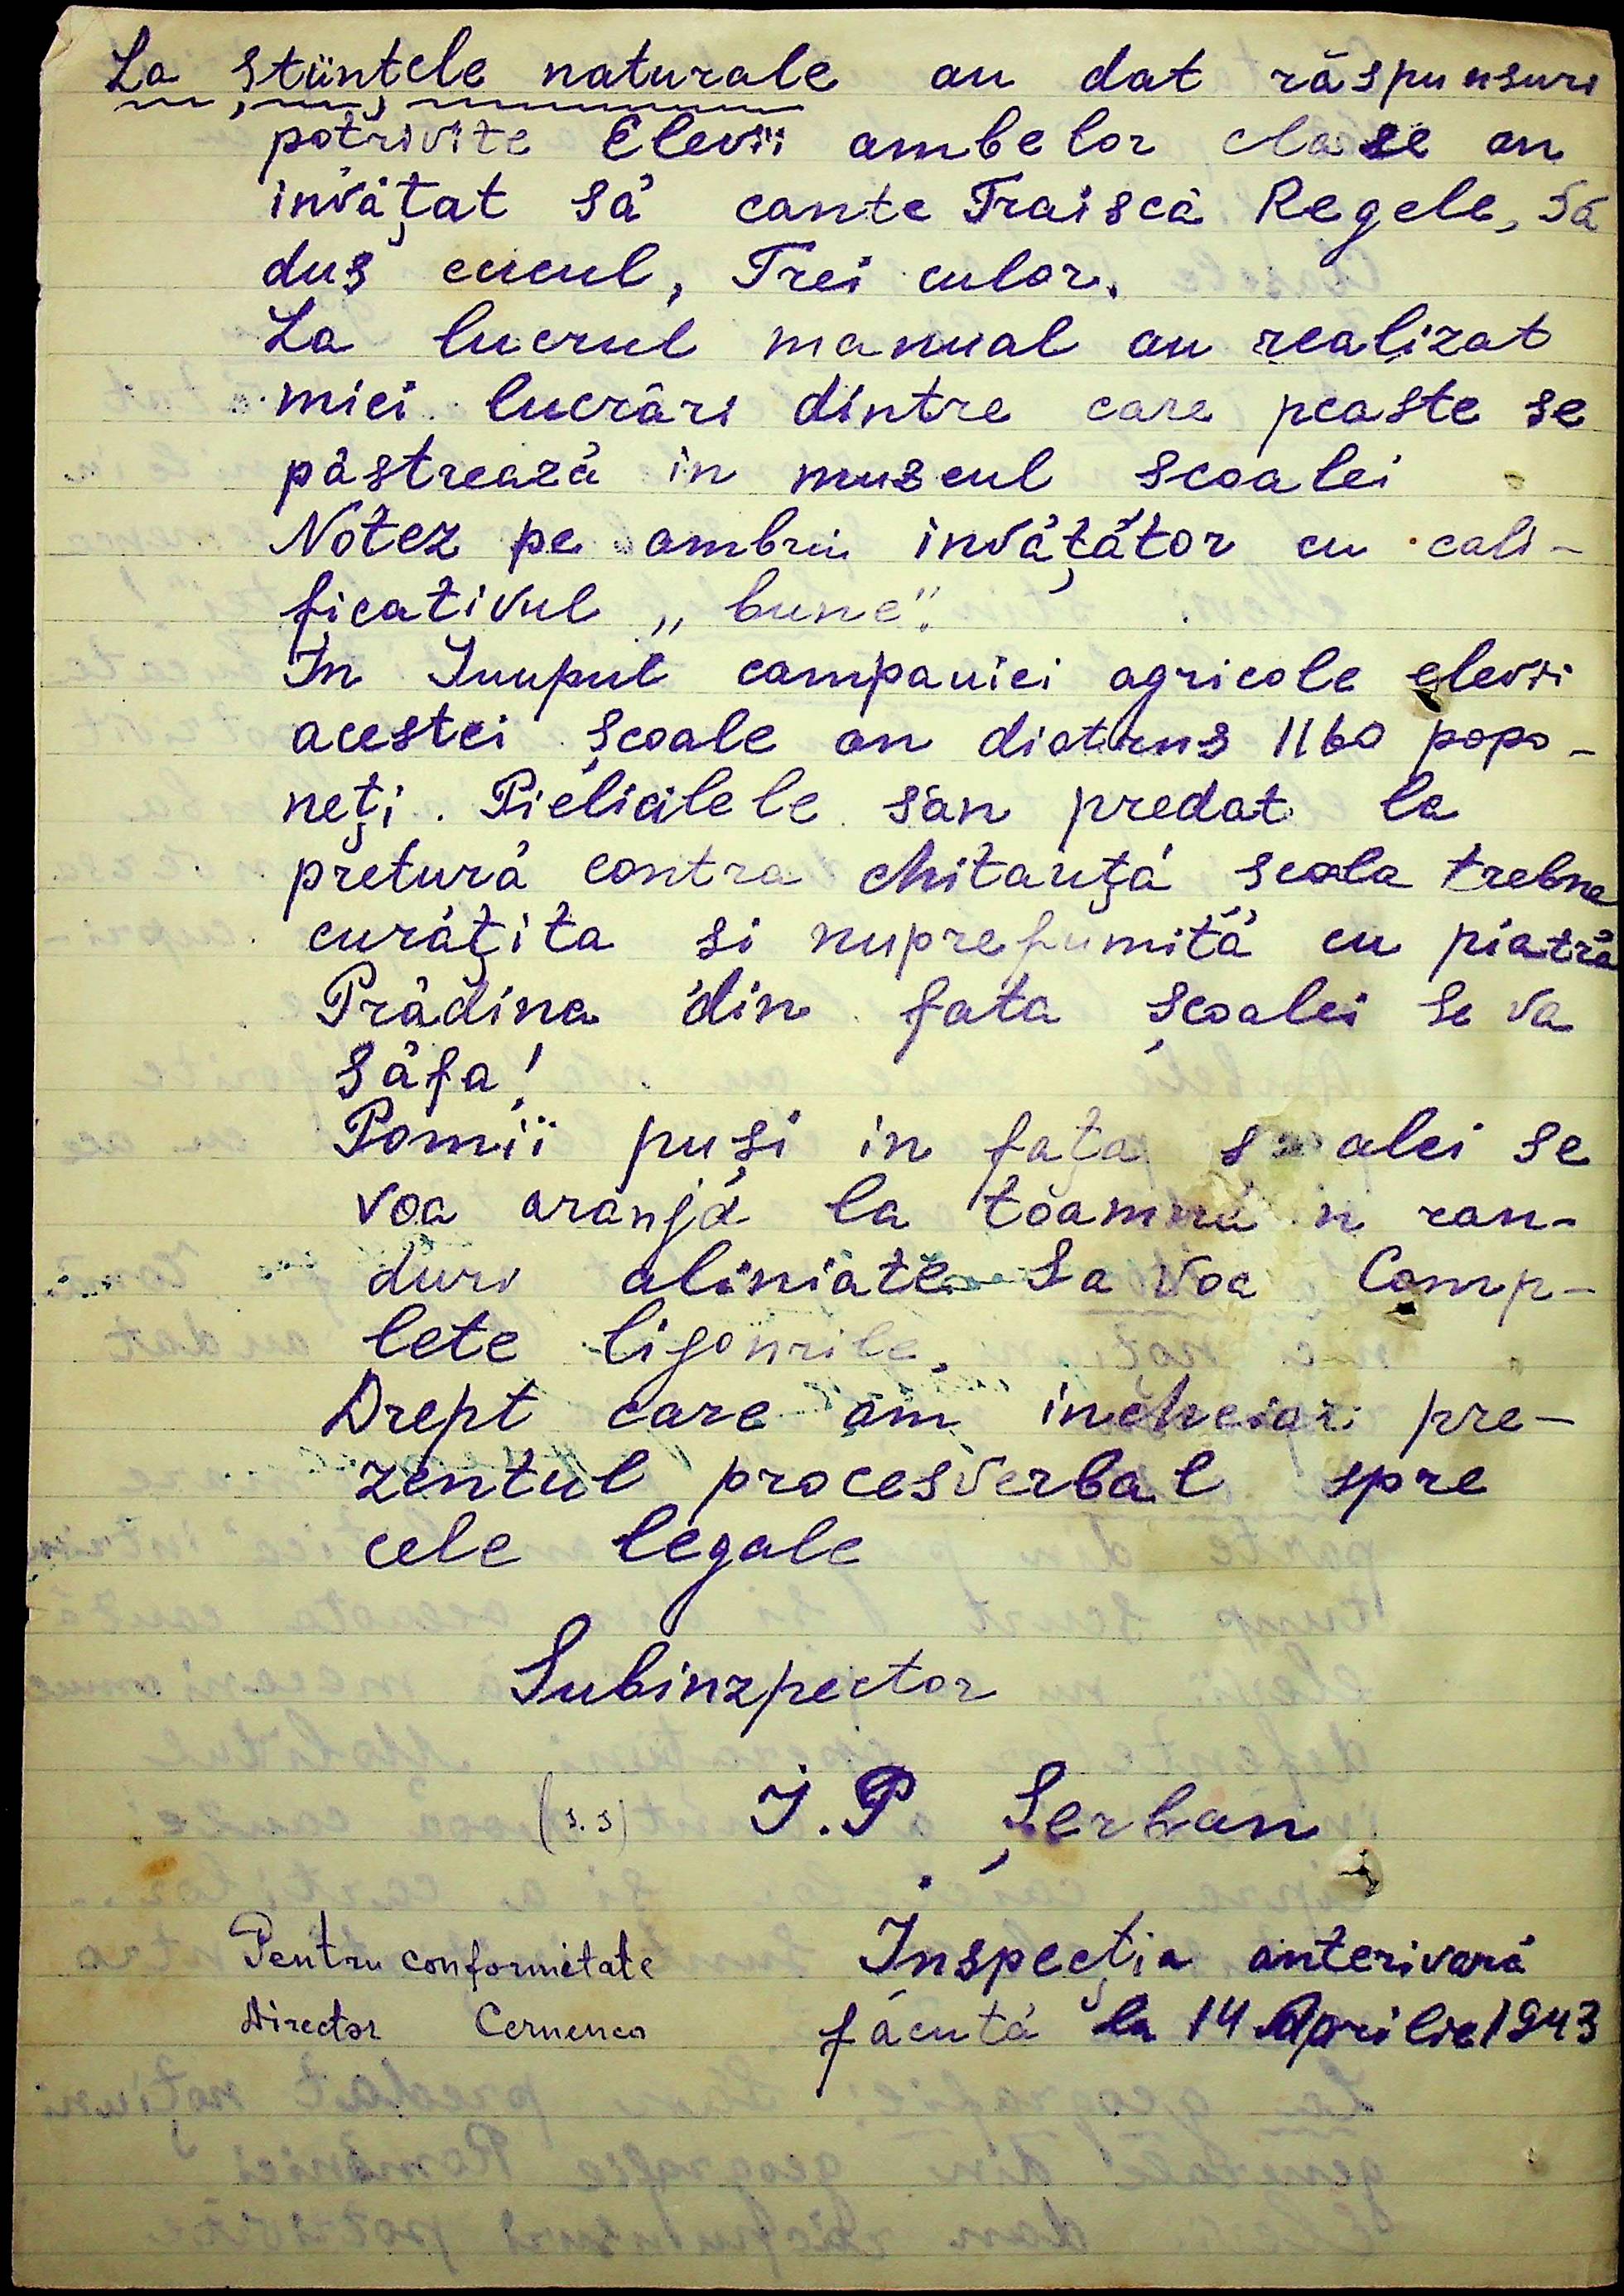 La științele naturale au dat răspunsuri
potrivite Elevii ambelor clase au
invățat să cante Traiscă Regele, Să
dus cucul, Trei culori.
La lucrul manual au realizat
mici lucrări dintre care peaste se
păstrează in muzeul scoalei
Notez pe ambrii invățător cu cali-
ficativul „bune".
In Inupul campaniei agricole elevii
acestei școale au diatrus 1160 popo-
neți. Pielicilele s'au predat la
pretură contra chitanță scoala trebue
curățita si nuprefumită cu piatră
Prădina din fata școalei se va
săfa!
Pomii puși in fața scoalei se
voa aranjă la toamnă in ran-
duri aliniate Sa voa Comp-
lete ligonrile.
Drept care am incheiar pre-
zentul procesverbal spre
cele legale
Subinzpector
(s.s) I.P. Șerban
Pentru conformitate
Director Cernenco
Inspecția anterivară
făcută la 14 Aprilie 1943